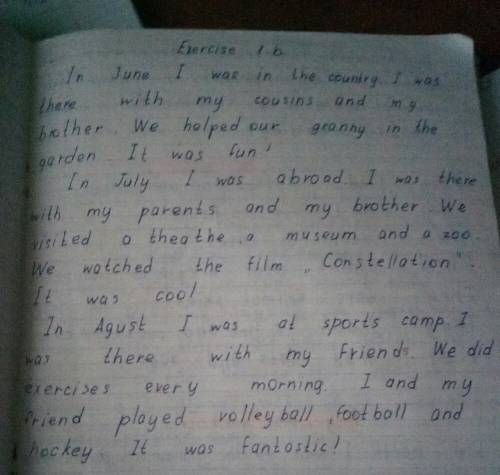 Exercise 1 b
In June I was in the country. I was
there with my cousins and my
brother. We helped our granny in the
garden. It was fun!
In July I was abroad. I was there
with my parents and my brother. We
visited a theathe, a museum and a zoo.
We watched the film „Constellation".
It was cool
In Agust I was at sports camp. I
was there with my friends. We did
exercises every morning. I and my
friend played volleyball, football and
hockey. It was fantastic!